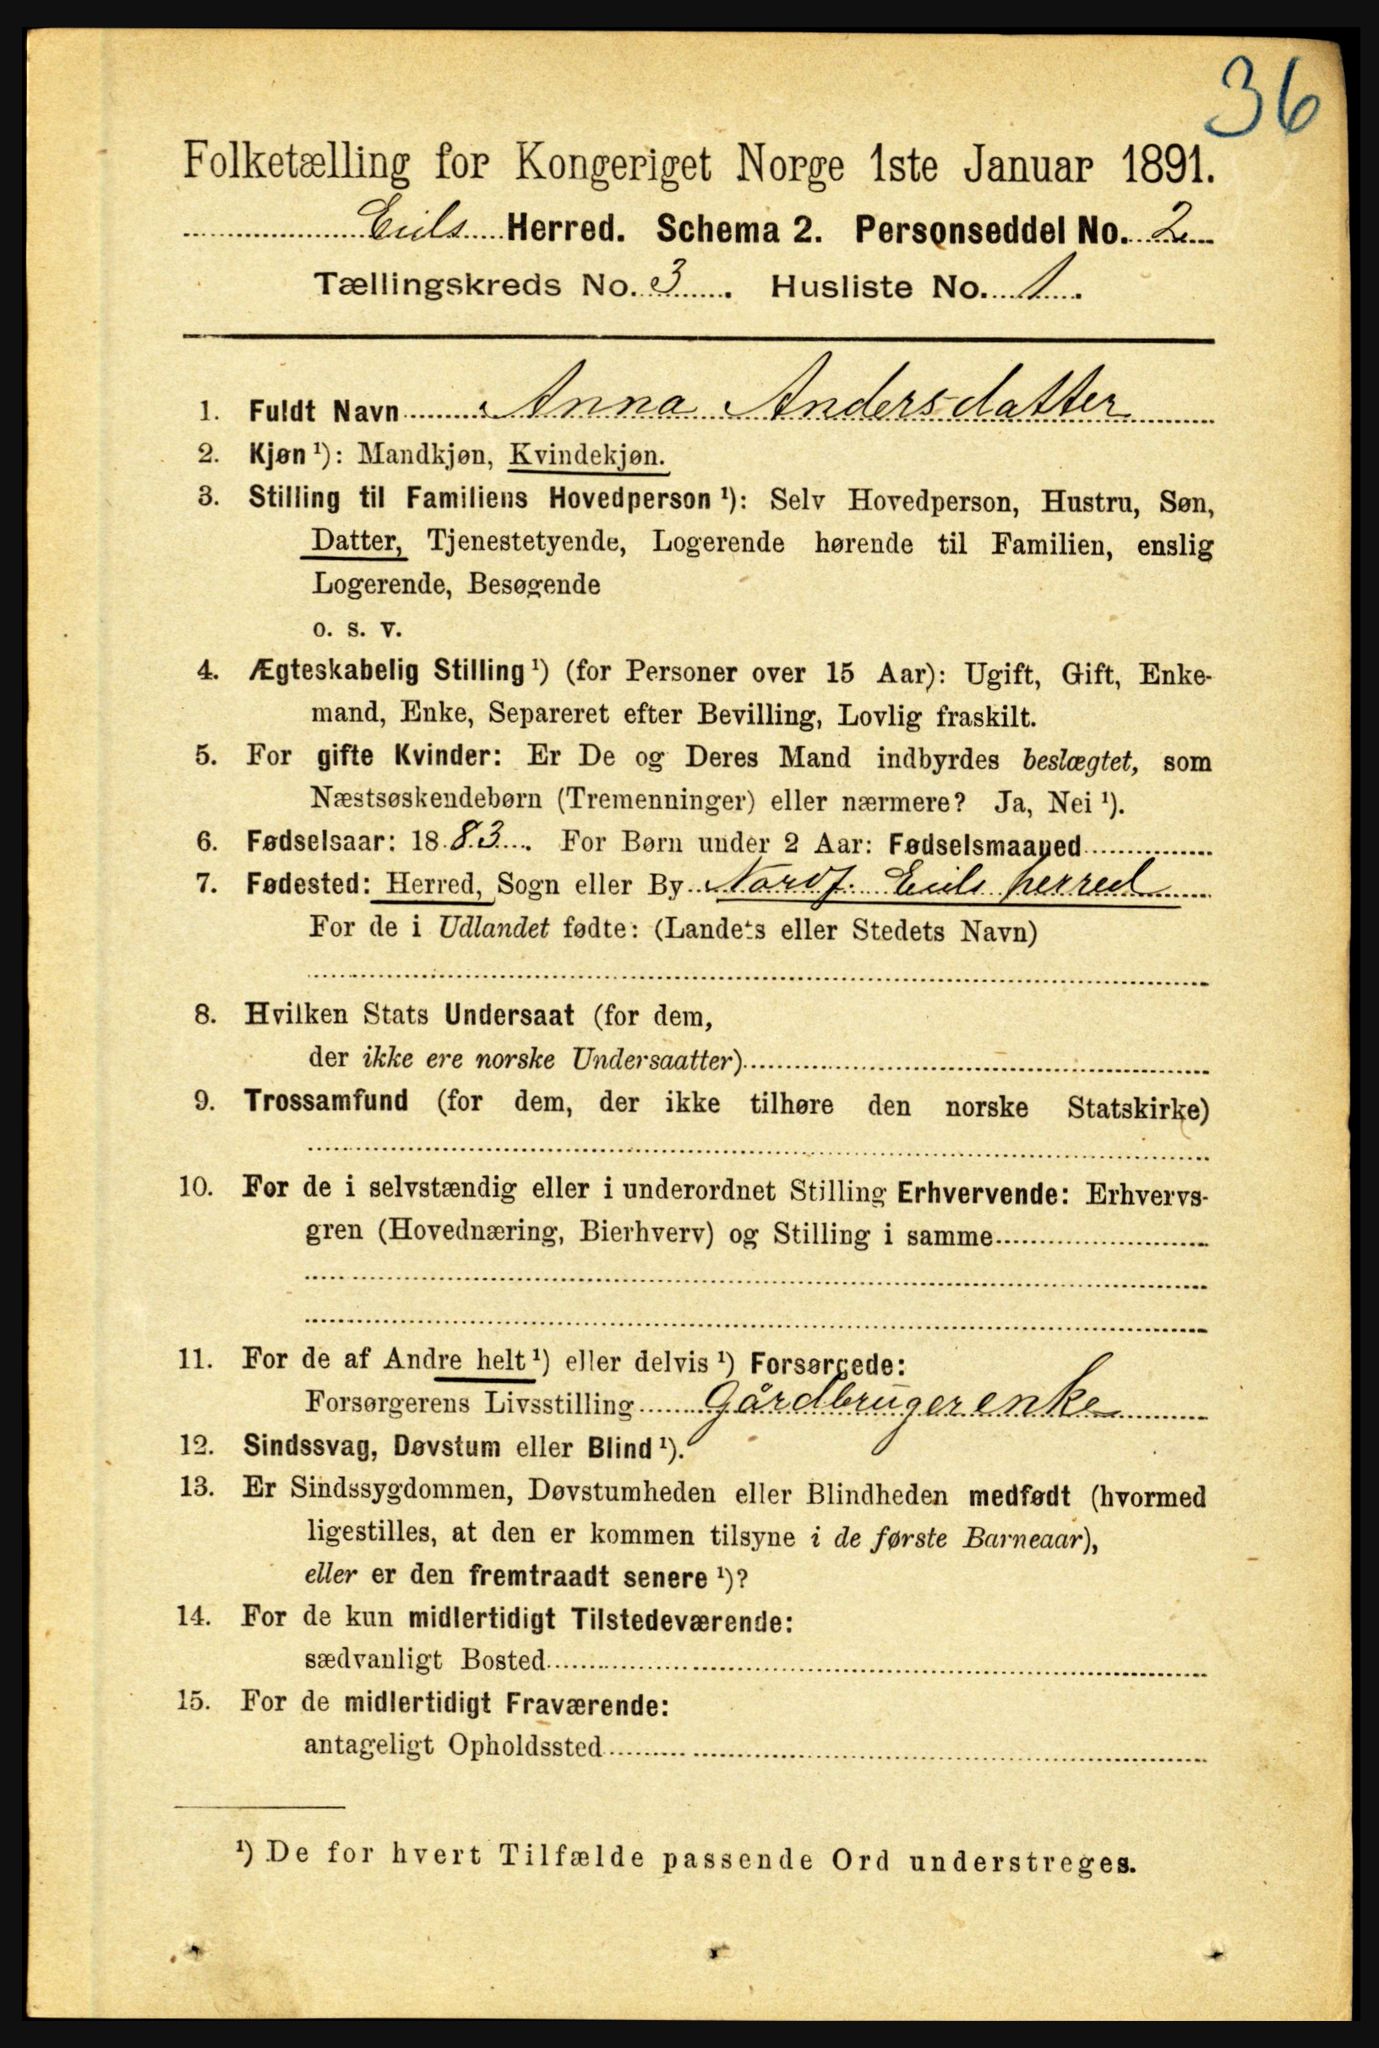 36
Folketælling for Kongeriget Norge 1ste Januar 1891.
Eids Herred. Schema 2. Personseddel No. 2
Tællingskreds No. 3. Husliste No. 1.
1. Fuldt Navn Anna Andersdatter
2. Kjøn ¹): Mandkjøn, Kvindekjøn.
3. Stilling til Familiens Hovedperson ¹): Selv Hovedperson, Hustru, Søn,
Datter, Tjenestetyende, Logerende hørende til Familien, enslig
Logerende, Besøgende
o. s. v.
4. Ægteskabelig Stilling ¹) (for Personer over 15 Aar): Ugift, Gift, Enke-
mand, Enke, Separeret efter Bevilling, Lovlig fraskilt.
5. For gifte Kvinder: Er De og Deres Mand indbyrdes beslægtet, som
Næstsøskendebørn (Tremenninger) eller nærmere? Ja, Nei ¹).
6. Fødselsaar: 1883. For Børn under 2 Aar: Fødselsmaaned
7. Fødested: Herred, Sogn eller By Nordf. Eids herred
For de i Udlandet fødte: (Landets eller Stedets Navn)
8. Hvilken Stats Undersaat (for dem,
der ikke ere norske Undersaatter)
9. Trossamfund (for dem, der ikke tilhøre den norske Statskirke)
10. For de i selvstændig eller i underordnet Stilling Erhvervende: Erhvervs-
gren (Hovednæring, Bierhverv) og Stilling i samme
11. For de af Andre helt ¹) eller delvis ¹) Forsørgede:
Forsørgerens Livsstilling Gårdbrugerenke
12. Sindssvag, Døvstum eller Blind ¹).
13. Er Sindssygdommen, Døvstumheden eller Blindheden medfødt (hvormed
ligestilles, at den er kommen tilsyne i de første Barneaar),
eller er den fremtraadt senere ¹)?
14. For de kun midlertidigt Tilstedeværende:
sædvanligt Bosted
15. For de midlertidigt Fraværende:
antageligt Opholdssted
¹) De for hvert Tilfælde passende Ord understreges.